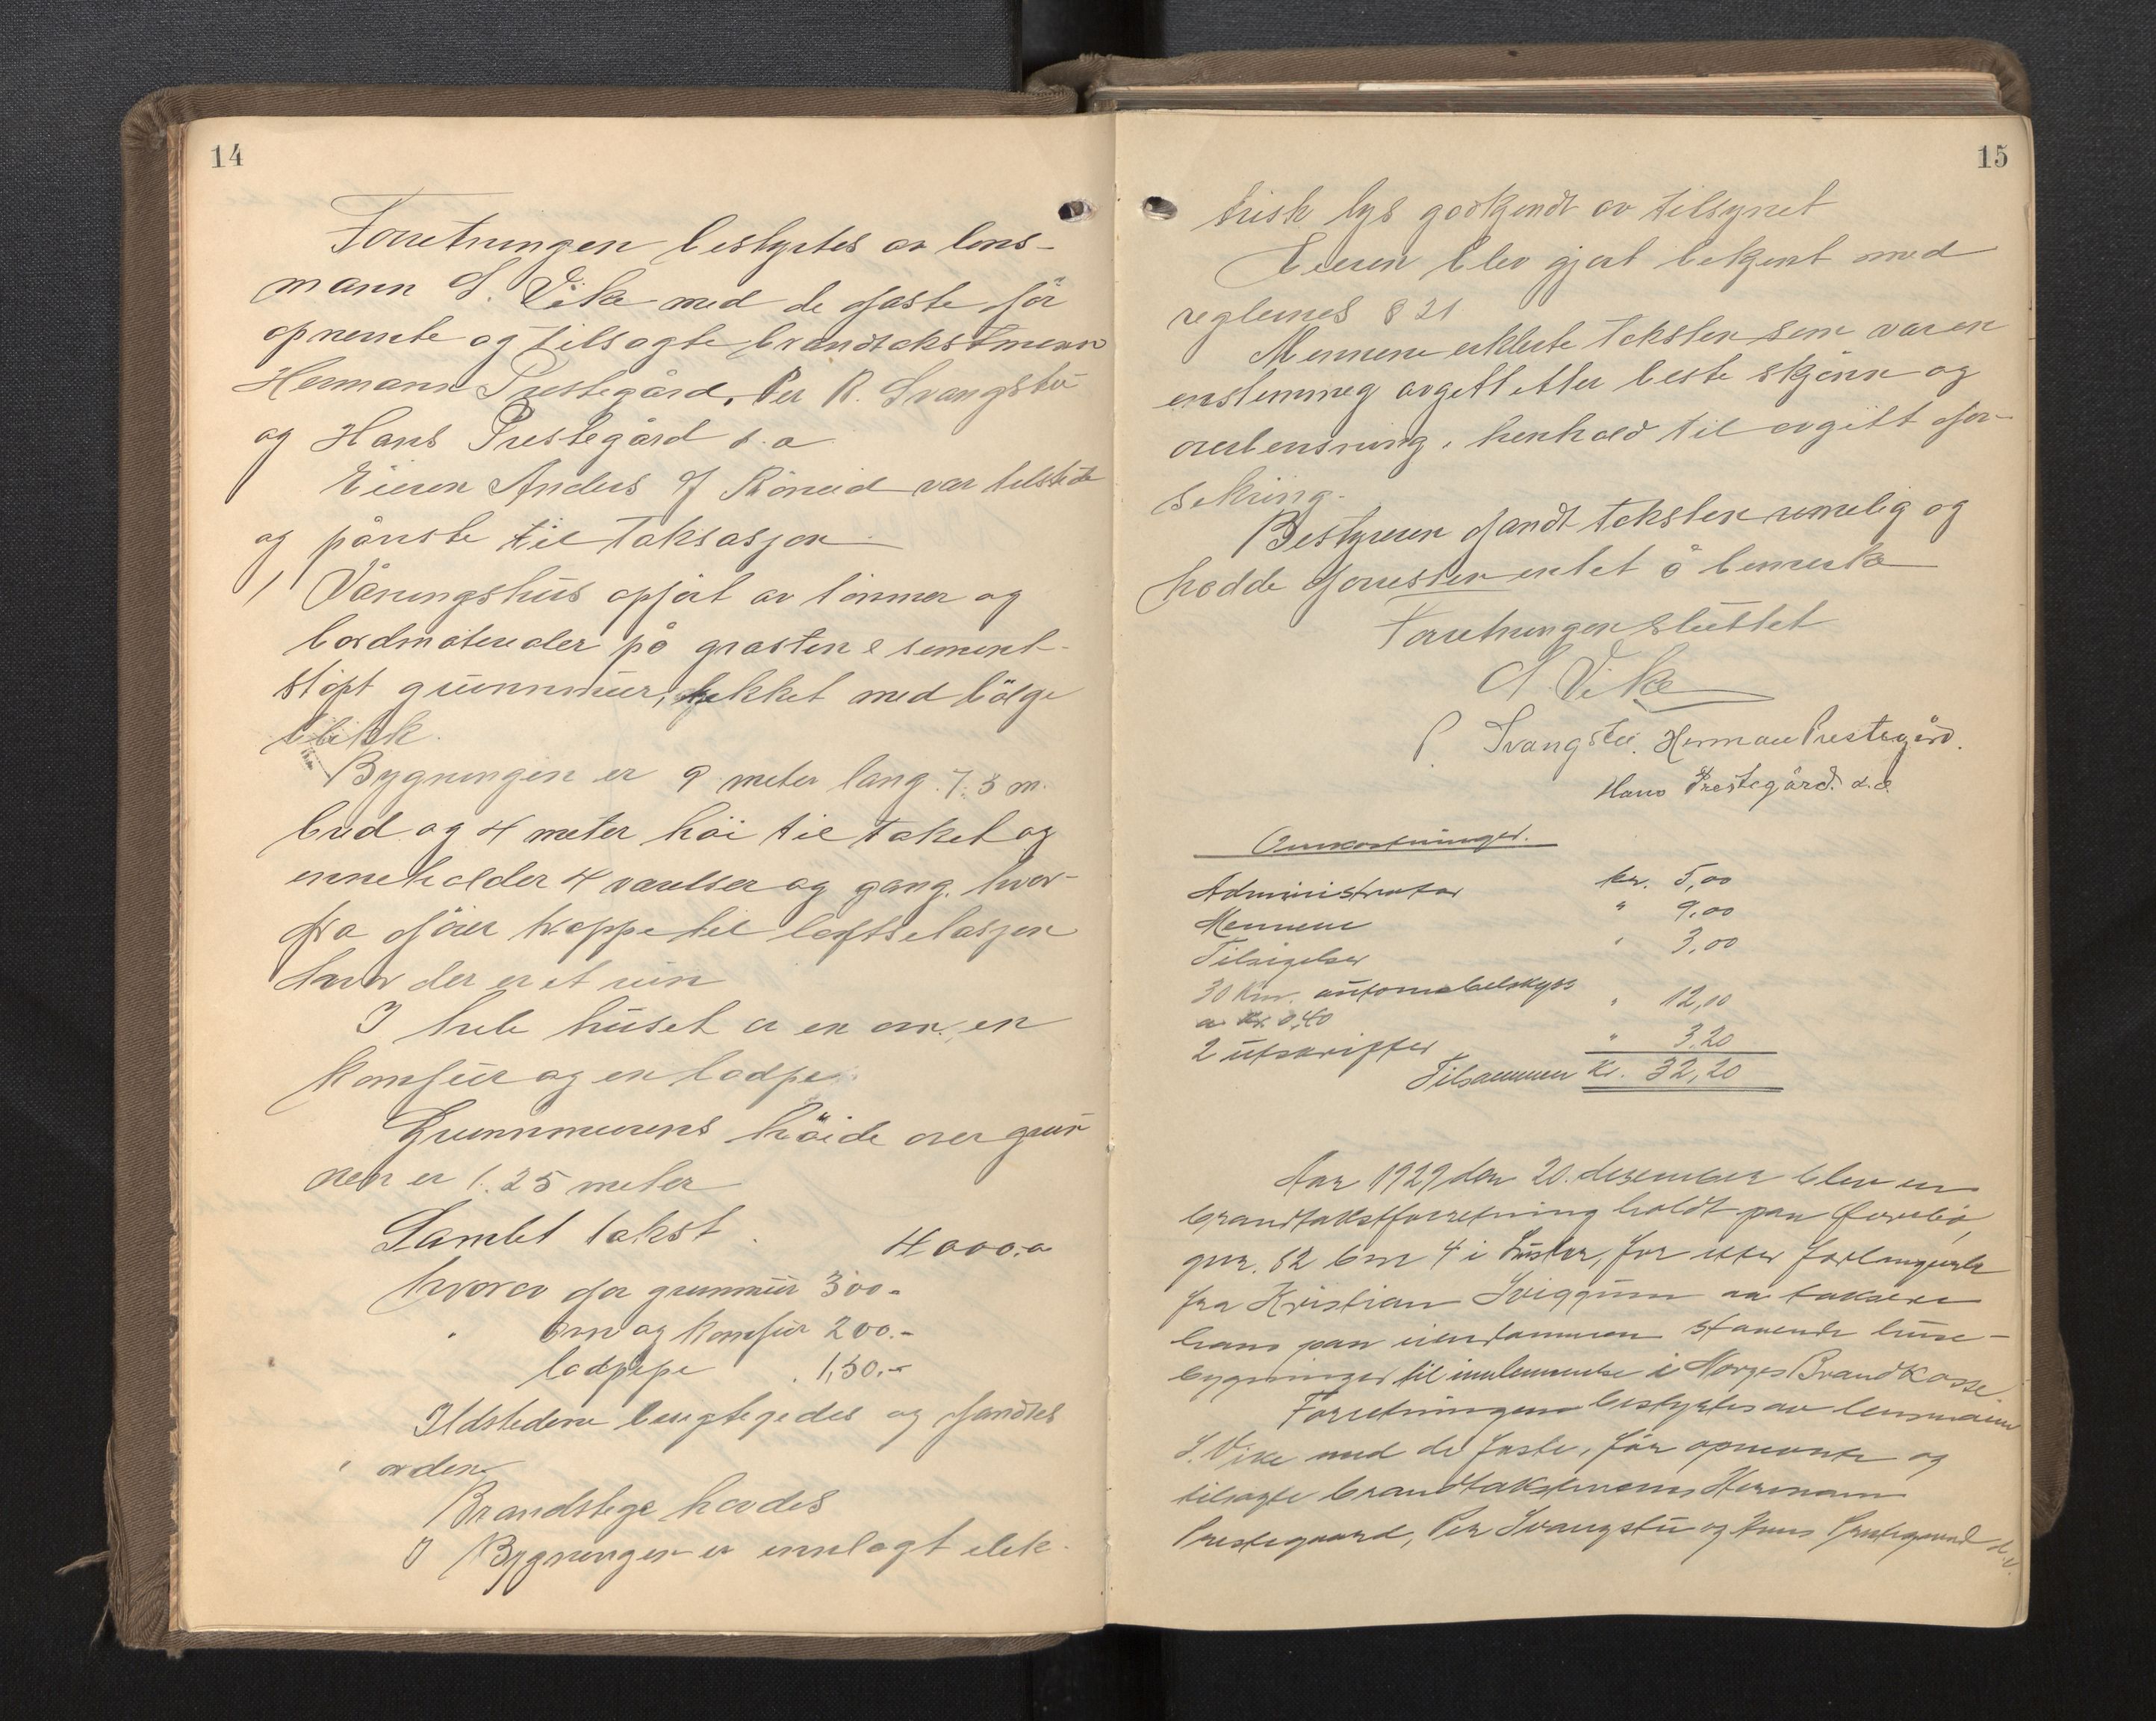 14
Forretningen bestyrtes av lens-
mann S. Vike med de faste før
opnevnte og tilsagte brandtakstmenn
Hermann Prestegård, Per R. Svangstu
og Hans Prestegård d.a
Eieren Anders J Röneid var tilstede
og påviste til taksasjon
1/ Våningshus opført av tömmer og
bordmaterialer på grasten & sement-
støpt grunnmur, tekket med bölge
blikk.
Bygningen er 9 meter lang 7.5 m.
bred og 4 meter höi til taket og
inneholder 4 værelser og gang, hvor-
fra fører trappe til loftsetasjen
hvor der er et rum
I hele huset er en ovn, en
komfur og en lodpipe
Grunnmurens höide over grun
nen er 1.25 meter
Samlet takst 4000.-
hvorav for grunnmur 300.-
" ovn og komfur 200.-
lodpipe 150.-
Ildstedene besigtigedes og fandtes
i orden
Brandstige havdes
I Bygningen er innlagt elek-
15
trisk lys godkjendt av tilsynet
Eieren blev gjort bekjent med
reglenes § 21
Mennene erklerte taksten som var en
enstemmeg avgitt etter beste skjönn og
overbevisning i henhold til avgitt for-
sikring.
Bestyreren fandt taksten rimelig og
hadde forresten intet å bemerke
Forretningen sluttet
S Vike
P. Svangstu. Herman Prestegård.
Hans Prestegård. d.e.
Omkostninger.
Administrator kr. 5,00
Mennene " 9,00
Tilsigelser " 3,00
30 Km. automobilskyss
a kr 0,40 " 12,00
2 utskrifter " 3.20
Tilsammen Kr. 32,20
Aar 1929 den 20. desember blev en
brandtakstforretning holdt paa
gnr. 82 bnr 4 i Luster, for etter forlangende
fra Kristian Sviggum aa taksere
hans paa eiendommen staaende huse-
bygninger til innlemmelse i Norges Brandkasse
Forretningen bestyrtes av lensmann
S. Vike med de faste, før opnevnte og
tilsagte brandtakstmenn Hermann
Prestegaard, Per Svangstu og Hans Prestegaard d.e.